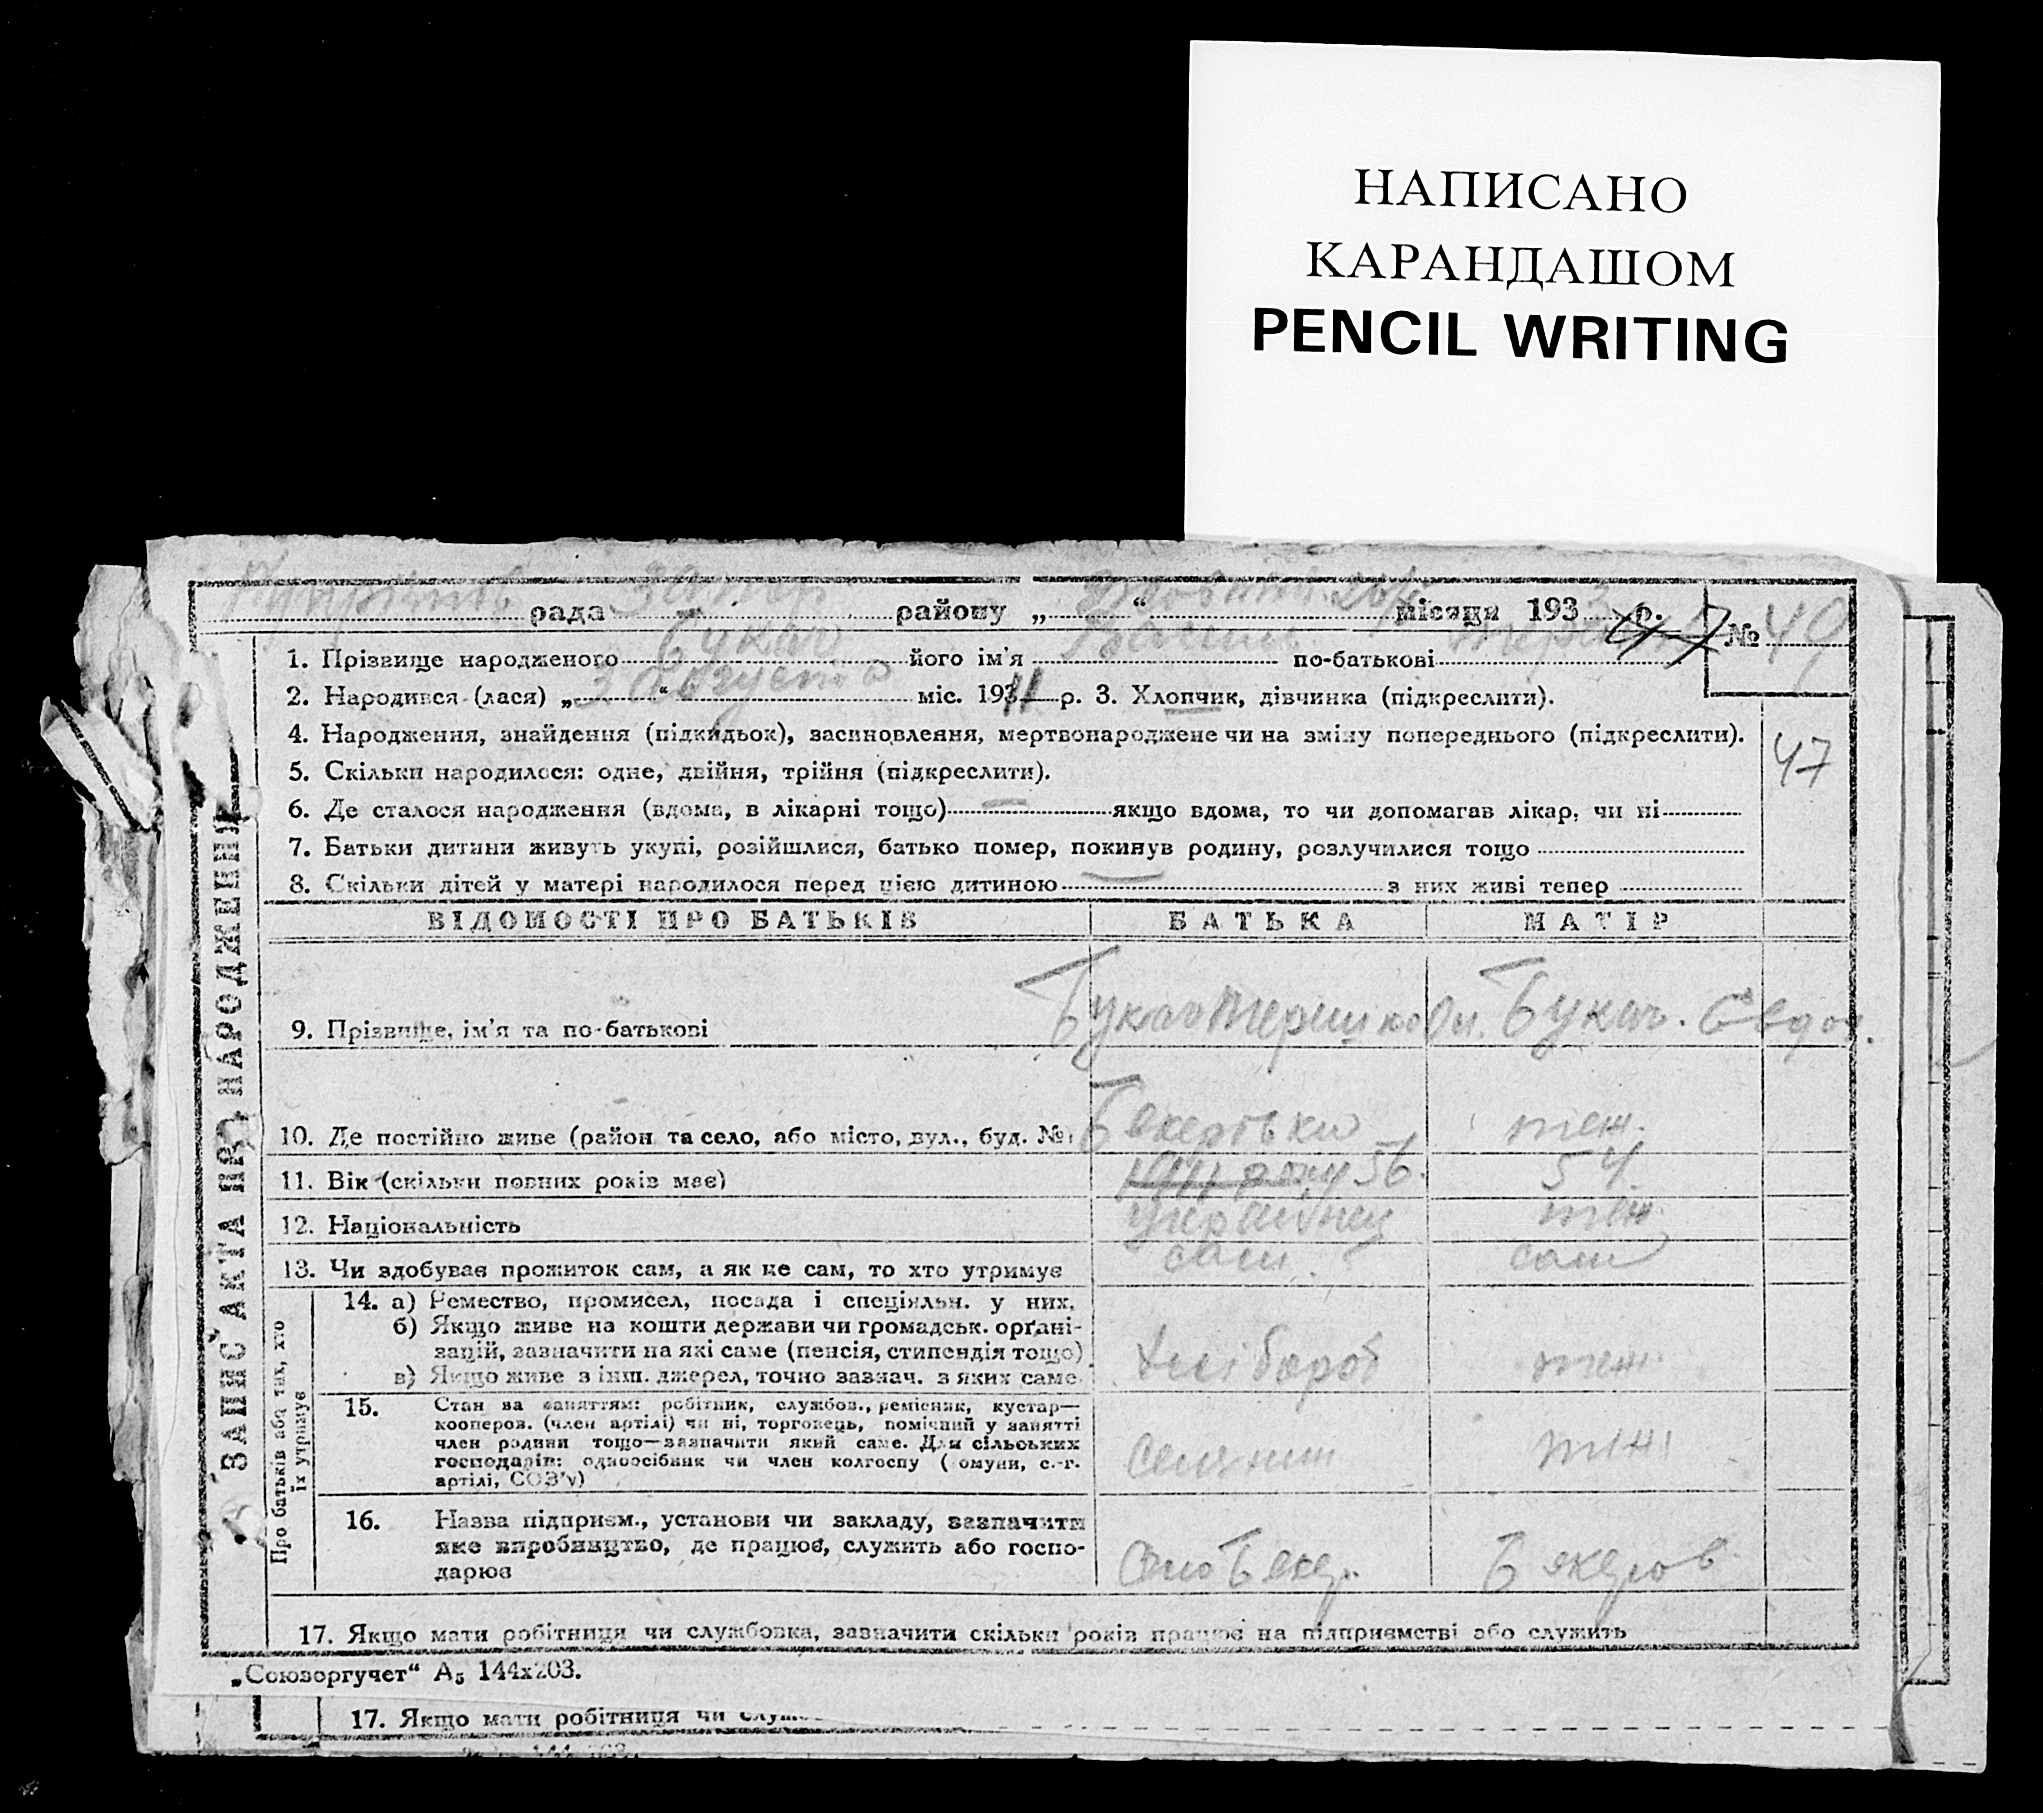 НАПИСАНО
КАРАНДАШОМ
PENCIL WRITING
рада району „ “ місяця 193 3 р. № 40
1. Прізвище народженого Букач його ім'я по-батькові
2. Народився (лася) „3“ августа міс. 1911 р. 3. Хлопчик, дівчинка (підкреслити).
4. Народження, знайдення (підкидьок), засиновлення, мертвонароджене чи на зміну попереднього (підкреслити).
47
5. Скільки народилося: одне, двійня, трійня (підкреслити).
6. Де сталося народження (вдома, в лікарні тощо) — якщо вдома, то чи допомагав лікар, чи ні
7. Батьки дитини живуть укупі, розійшлися, батько помер, покинув родину, розлучилися тощо
8. Скільки дітей у матері народилося перед цією дитиною — з них живі тепер
ЗАПИС АКТА ПРО НАРОДЖЕННЯ
ВІДОМОСТІ ПРО БАТЬКІВ БАТЬКА МАТІР
9. Прізвище, ім'я та по-батькові Букач Букач
10. Де постійно живе (район та село, або місто, вул., буд. № теж.
11. Вік (скільки повних років має) 56. 54.
12. Національність українец теж
13. Чи здобуває прожиток сам, а як не сам, то хто утримує сам. сам
Про батьків або тих, хто їх утримує
14. а) Ремество, промисел, посада і спеціяльн. у них.
б) Якщо живе на кошти держави чи громадськ. орґані-
зацій, зазначити на які саме (пенсія, стипендія тощо)
в) Якщо живе з інш. джерел, точно зазнач. з яких саме
хлібороб теж.
15. Стан за заняттям: робітник, службов., ремісник, кустар—
кооперов. (член артілі) чи ні, торговець, помічний у занятті
член родини тощо—зазначити який саме. Для сільських
господарів: одноосібник чи член колгоспу (омуни, с.-г.
артілі, СОЗ'у)
селянин теж
16. Назва підприєм., установи чи закладу, зазначити
яке виробництво, де працює, служить або госпо-
дарює
17. Якщо мати робітниця чи службовка, зазначити скільки років працює на підприємстві або служить
„Союзоргучет“ А5 144х203.
17. Якщо мати робітниця чи